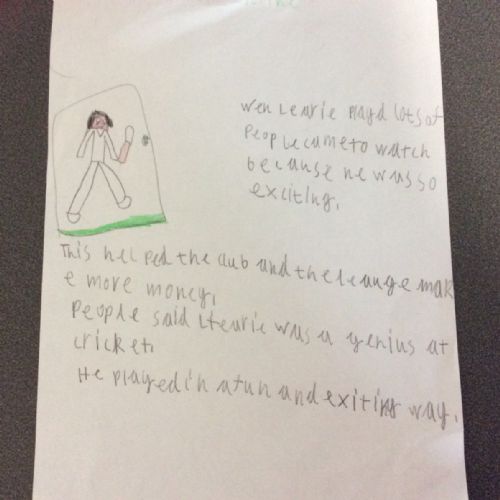 Wen Learie playd lots of
People came to watch
because he was so
exciting.
This helped the club and the leauge mak
e more money.
People said Learie was a genius at
cricket.
He played in a fun and exiting way.